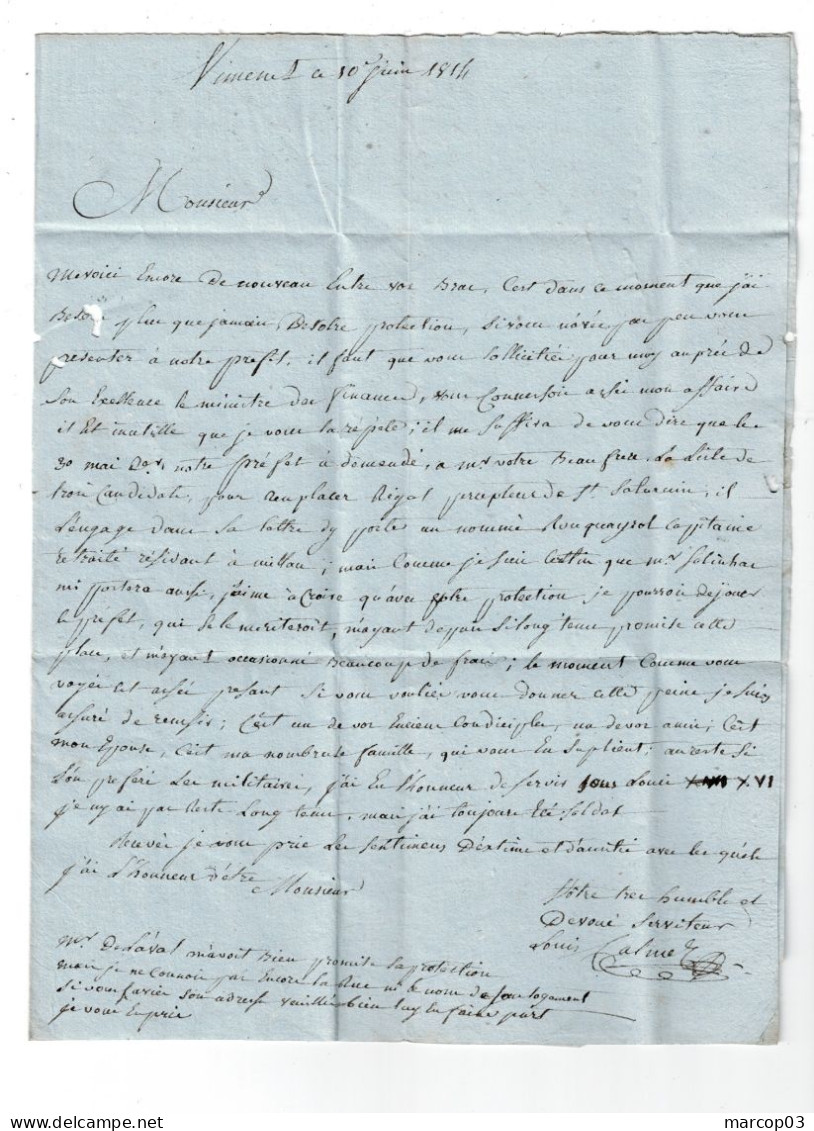 Vimenet ce 10 juin 1814
Monsieur
Me voici Encore De nouveau Entre vos Bras, C'est dans ce moment que j'ai
Besoin plus que jamais, De votre protection, si vous n'avée pas peu vous
presenter à notre prefet, il faut que vous sollicitiée pour moy auprée de
son Exellence le ministre des Finances, vous Connoissée assée mon affaire
il Est inutille que je vous la répete; il me suffira de vous dire que le
30 mai Der notre préfet à demandé, a mr votre Beaufrere La Liste de
trois Candidats, pour remplacer Rigal precepteur de St Saturnin, il
L'engage dans sa lettre dy porter un nommé Rouquayrol Capitaine
retraité résidant à millau; mais Comme je suis Certin que mr Salinhac
mi portera aussi, j'aime à Croire qu'avec votre protection je pourrois dejouer
le préfet, qui se le meriteroit, m'ayant depuis si long tems promise cette
place, et m'ayant occasionné Beaucoup de frais; le moment Comme vous
voyée Est assée pressant si vous vouliée vous donner cette peine je suis
assuré de reussir; C'est un de vos Encien Condisciples, un de vos amis; C'est
mon Epouse, C'est ma nombreuse famille, qui vous En suplient; aureste si
L'on prefere Les militaires, j'ai Eu L'honneur de servir sous Louis XVI
je ny ai pas Resté Long tems, mais j'ai toujours Eté soldat
Recevée je vous prie Les sentimens D'estime et d'amitié avec les quels
j'ai L'honneur d'étre
Monsieur
Vôtre tres humble et
Devoué serviteur
Louis Calmes
Mr DeLaval m'avoit Bien promise sa protection
mais je ne Connois pas Encore la Rue ni le nom de son logement
si vous savée son adresse veuillée bien luy En faire part
je vous En prie
marcop03